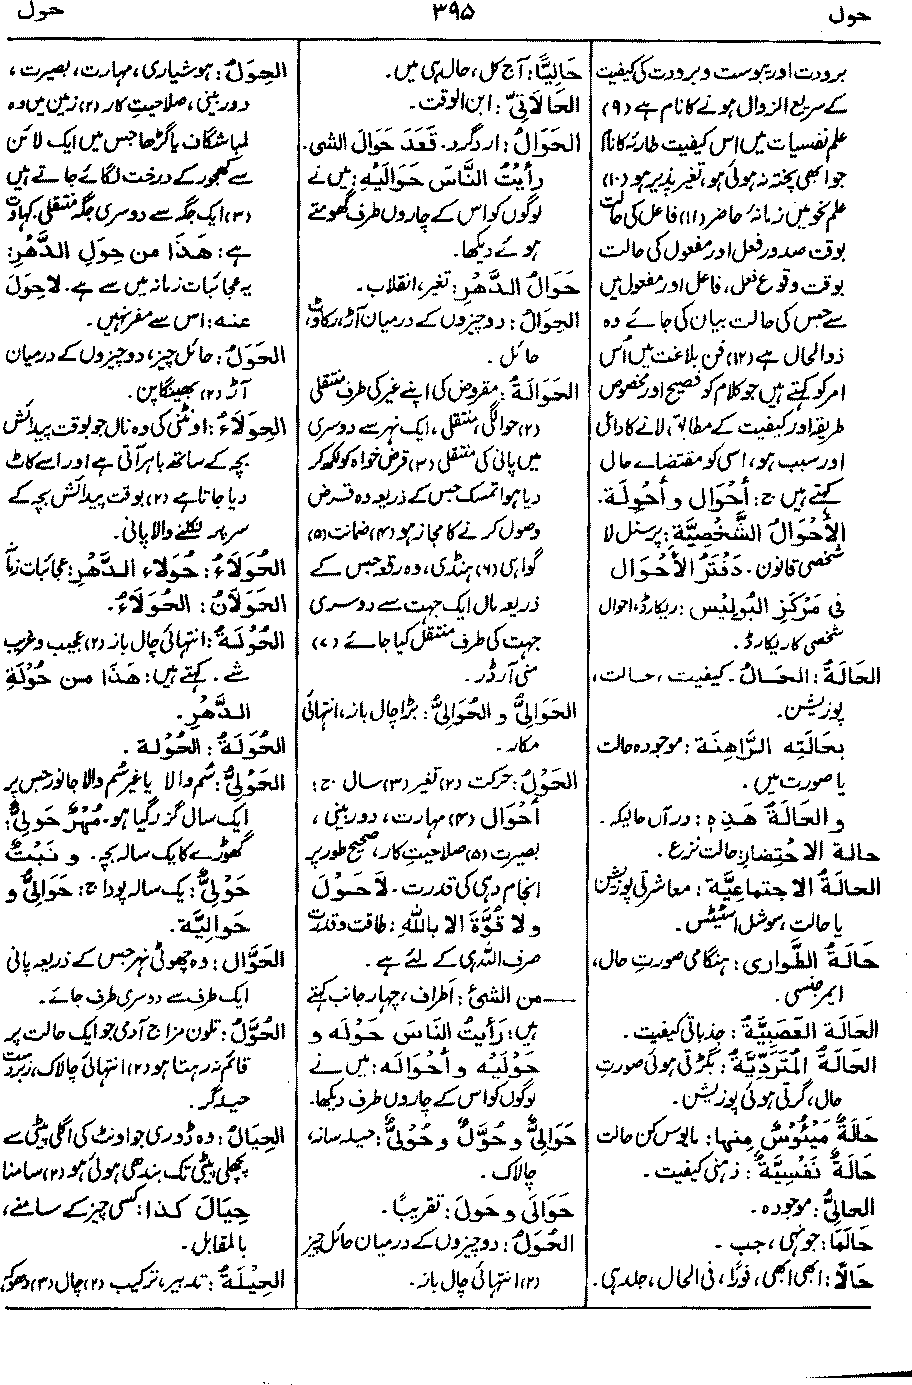 حول
۳۹۵
حول
برودت اور یبوست و برودت کی کیفیت
کے سریع الزوال ہونے کا نام ہے (۹)
علم نفسیات میں اس کیفیت طاریہ کا نام
جو ابھی پختہ نہ ہوئی ہو، تغیر پذیر ہو (۱۰)
علم نحو میں زمانۂ حاضر (۱۱) فاعل کی حالت
بوقت صدور فعل اور مفعول کی حالت
بوقت وقوع فعل، فاعل اور مفعول میں
سے جس کی حالت بیان کی جائے وہ
ذوالحال ہے (۱۲) فن بلاغت میں اُس
امر کو کہتے ہیں جو کلام کو فصیح اور مخصوص
طریقہ اور کیفیت کے مطابق لانے کا داعی
اور سبب ہو، اسی کو مقتضائے حال
کہتے ہیں ج: أحْوَال و أحْوِلَة.
الأحْوَالُ الشَّخْصِيَّة: پرسنل لا
شخصی قانون۔ دَفْتَرُ الأحْوَال
فِی مَرْكَزِ البُولِيْس: ریکارڈ، احوال
شخصی کا ریکارڈ۔
الحَالَةُ: الحَالُ۔ کیفیت، حالت،
پوزیشن۔
بِحَالَتِهِ الرَّاهِنَة: موجودہ حالت
یا صورت میں۔
و الحَالَةُ هٰذِهِ: در آں حالیکہ۔
حالة الاحْتِضَار: حالت نزع۔
الحَالَةُ الاجتماعِيَّة: معاشرتی پوزیشن
یا حالت، سوشل اسٹیٹس۔
حَالَةُ الطَّوارِى: ہنگامی صورتِ حال،
ایمرجنسی۔
الحَالَة العَصَبِيَّةُ: جذباتی کیفیت۔
الحَالَةُ المُتَرَدِّيَّةُ: بگڑتی ہوئی صورتِ
حال، گرتی ہوئی پوزیشن۔
حَالَةٌ مَيْئُوْسٌ مِنها: مایوس کن حالت
حَالَةٌ نَفْسِيَّةٌ: ذہنی کیفیت۔
الحالِىُّ: موجودہ۔
حَالَمَا: جونہی، جب۔
حَالًا: ابھی ابھی، فوراً، فی الحال، جلد ہی۔
حَالِيًّا: آج کل، حال ہی میں۔
الحَالَاتِىُّ: ابن الوقت۔
الحَوَالُ: ارد گرد۔ قَعَدَ حَوَالَ الشی.
رأيْتُ النَّاسَ حَوَالَيْهِ: میں نے
لوگوں کو اس کے چاروں طرف گھومتے
ہوئے دیکھا۔
حَوَالُ الدَّهْرِ: تغیر، انقلاب۔
الحِوَالُ: دو چیزوں کے درمیان آڑ، رکاوٹ
حائل۔
الحَوَالَةُ: مقروض کی اپنے غیر کی طرف منتقلی
(۲) حوالگی، منتقلی، ایک نہر سے دوسری
میں پانی کی منتقلی (۳) قرض خواہ کو لکھ کر
دیا ہوا تمسک جس کے ذریعہ وہ قرض
وصول کرنے کا مجاز ہو (۴) ضمانت (۵)
گواہی (۶) ہنڈی، وہ رقعہ جس کے
ذریعہ مال ایک جہت سے دوسری
جہت کی طرف منتقل کیا جائے (۷)
منی آرڈر۔
الحَوَالِىُّ و الحُوَالِىُّ: بڑا چال باز، انتہائی
مکار۔
الحَوْلُ: حرکت (۲) تغیر (۳) سال ج:
أحْوَال (۴) مہارت، دور بینی،
بصیرت (۵) صلاحیت کار، صحیح طور پر
انجام دہی کی قدرت۔ لَاحَوْلَ
و لا قُوَّةَ الا باللّٰهِ: طاقت و قدرت
صرف اللہ ہی کے لئے ہے۔
— من الشئ: اَطراف، چہار جانب کہتے
ہیں: رَأيتُ النَّاسَ حَوْلَه و
حَوْلَيْه و أحْوَالَه: میں نے
لوگوں کو اس کے چاروں طرف دیکھا۔
حَوَالِىٌّ و حُوَّلٌ و حُوْلِىٌّ: حیلہ ساز،
چالاک۔
حَوَالَى و حَوْلَ: تقریباً۔
الحُوَلُ: دو چیزوں کے درمیان حائل چیز
(۲) انتہائی چال باز۔
الحِوَلُ: ہوشیاری، مہارت، بصیرت،
دور بینی، صلاحیتِ کار (۲) زمین میں وہ
لمبا شگاف یا گڑھا جس میں ایک لائن
سے کھجور کے درخت لگائے جاتے ہیں
(۳) ایک جگہ سے دوسری جگہ منتقلی۔ کہاوت
ہے: هٰذَا مِن حِوَلِ الدَّهْرِ:
یہ عجائباتِ زمانہ میں سے ہے۔ لاحِوَلَ
عنه: اس سے مفر نہیں۔
الحَوَلُ: حائل چیز، دو چیزوں کے درمیان
آڑ (۲) بھینگا پن۔
الحِوَلَاءُ: اونٹنی کی وہ نال جو بوقت پیدائش
بچہ کے ساتھ باہر آتی ہے اور اسے کاٹ
دیا جاتا ہے (۲) بوقت پیدائش بچہ کے
سر پر نکلنے والا پانی۔
الحُوَلَاءُ: حُوَلَاء الدَّهْرِ: عجائبات زمانہ
الحَوَلَانُ: الحُوَلَاءُ.
الحُوَلَةُ: انتہائی چال باز (۲) عجیب و غریب
شے۔ کہتے ہیں: هٰذَا مِن حُوَلَةِ
الدَّهْرِ.
الحُوْلَةُ: الحُوَلَة.
الحَوْلِىُّ: سُم والا یا غیر سُم والا جانور جس پر
ایک سال گزر گیا ہو۔ مُهْرٌ حَوْلِىٌّ:
گھوڑے کا یک سالہ بچہ۔ و نَبْتٌ
حَوْلِىٌّ: یک سالہ پودا ج: حَوَالِىُّ و
حَوَالِيَّة.
الحَوَّال: وہ چھوٹی نہر جس کے ذریعہ پانی
ایک طرف سے دوسری طرف جائے۔
الحُوَّلُ: تلون مزاج آدمی جو ایک حالت پر
قائم نہ رہتا ہو (۲) انتہائی چالاک، زبردست
حیلہ گر۔
الحِيَالُ: وہ ڈوری جو اونٹ کی اگلی پیٹی سے
پچھلی پیٹی تک بندھی ہوئی ہو (۲) سامنا
حِيَالَ كذا: کسی چیز کے سامنے،
بالمقابل۔
الحِيْلَةُ: تدبیر، ترکیب (۲) چال (۳) دھوکہ